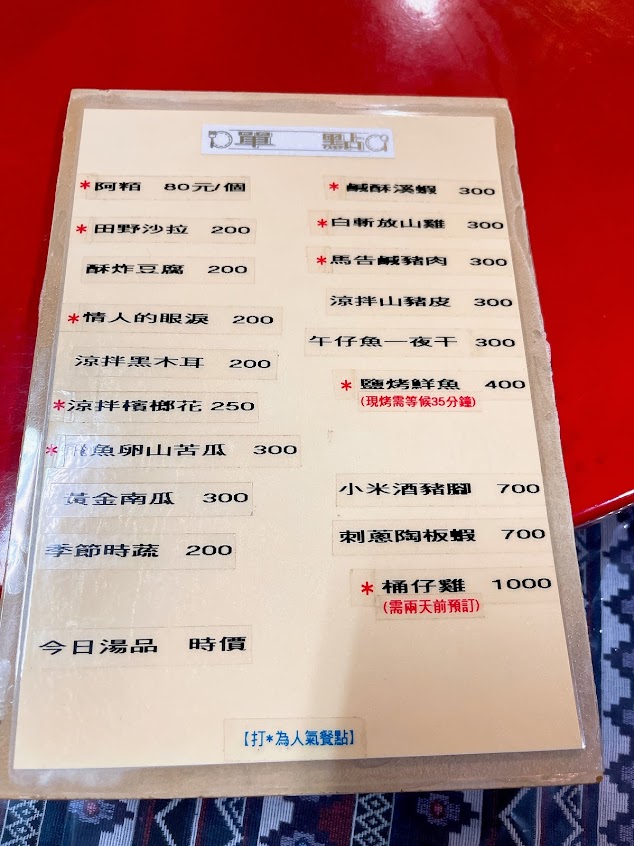 單 點
*阿粨 80元/個
*田野沙拉 200
酥炸豆腐 200
*情人的眼淚 200
涼拌黑木耳 200
*涼拌檳榔花 250
*飛魚卵山苦瓜 300
黃金南瓜 300
季節時蔬 200
今日湯品 時價
*鹹酥溪蝦 300
*白斬放山雞 300
*馬告鹹豬肉 300
涼拌山豬皮 300
午仔魚一夜干 300
*鹽烤鮮魚 400
(現烤需等候35分鐘)
小米酒豬腳 700
刺蔥陶板蝦 700
*桶仔雞 1000
(需兩天前預訂)
【打*為人氣餐點】